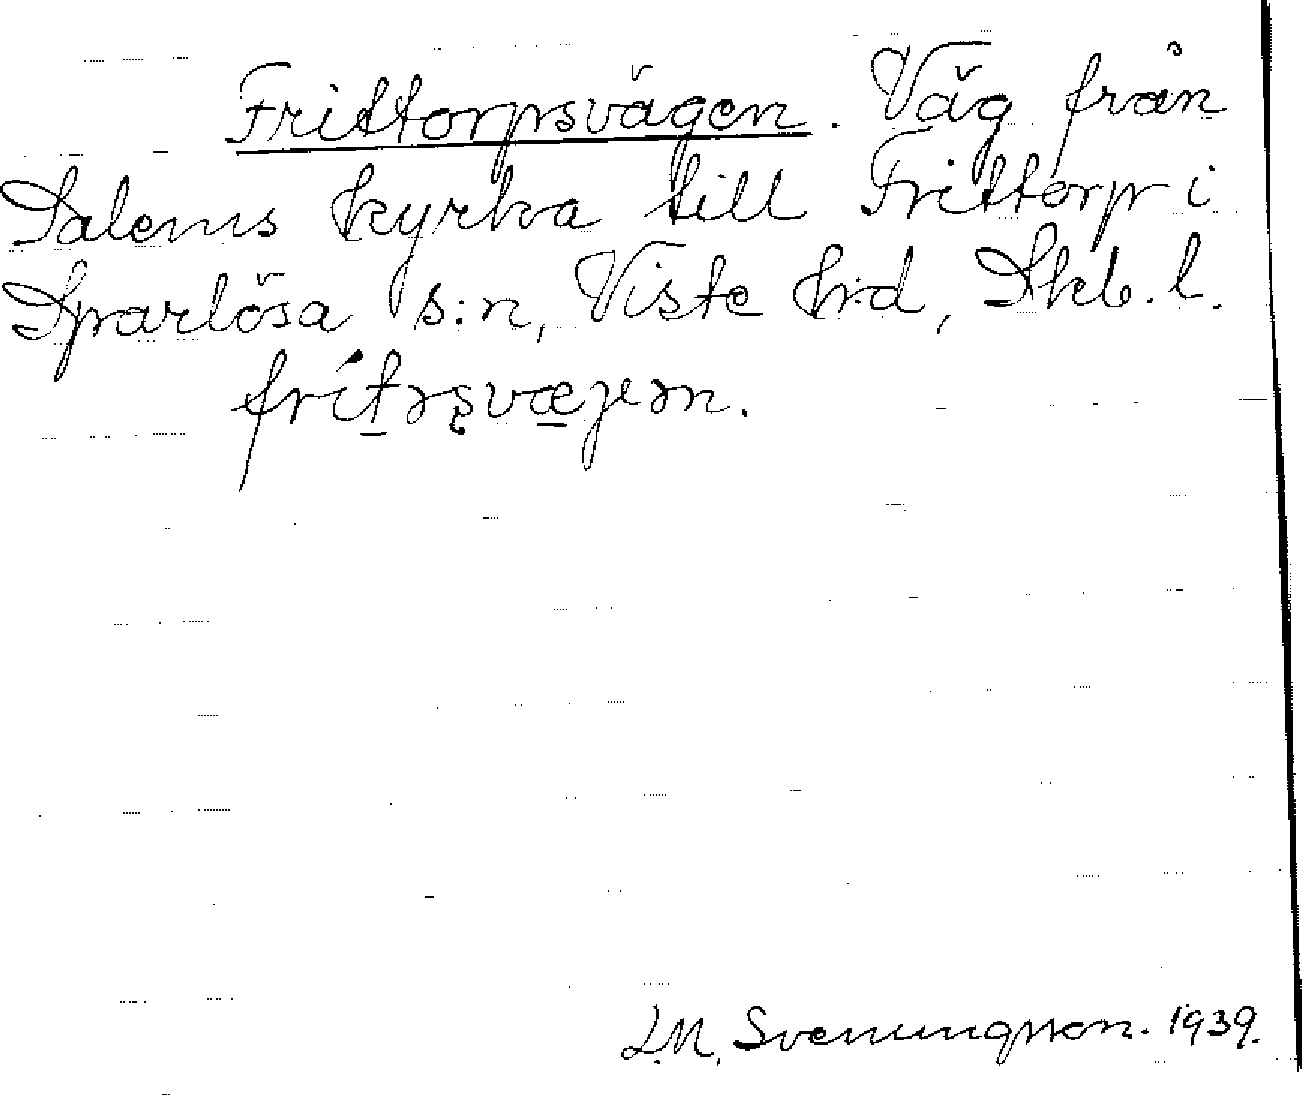 Frittorpsvägen. Väg från
Salems kyrka till Frittorp i
Sparlösa s:n, Viste hd, Skb. l.
L.M. Svenungsson. 1939.